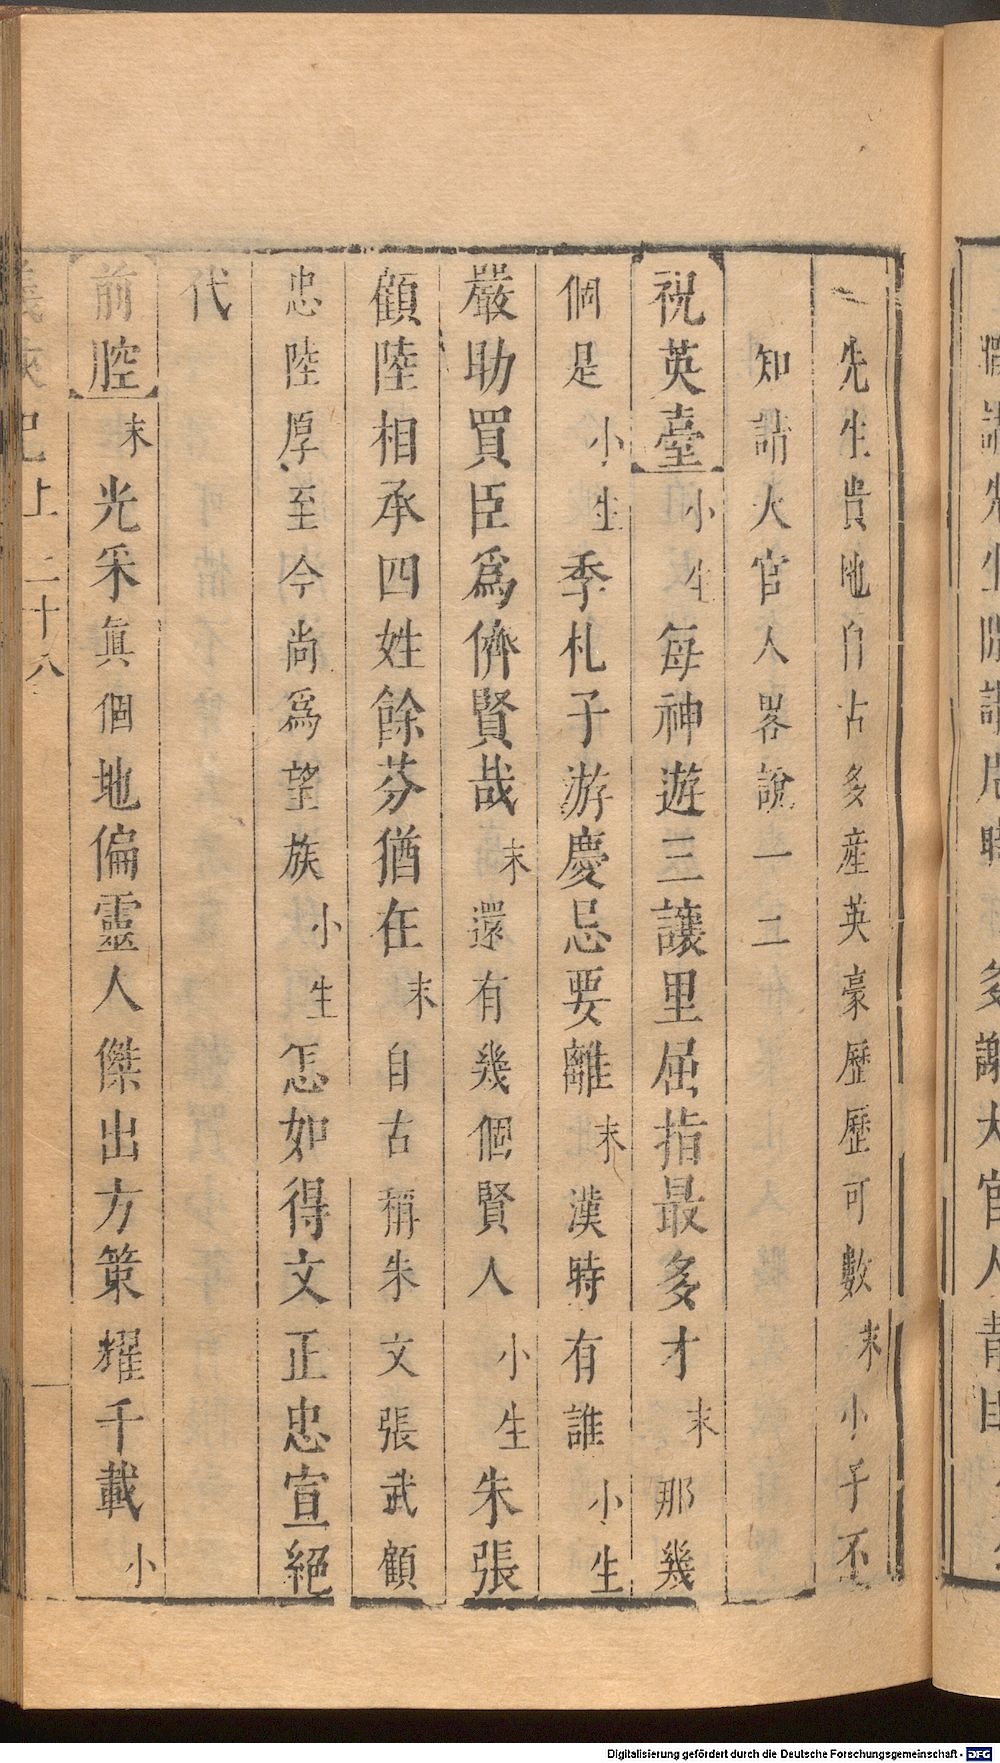 先生貴地自古多產英豪歷歷可數末小子不
知請大官人畧說一二
祝英臺小生每神遊三讓里屈指最多才末那幾
個是小生季札子游慶忌要離末漢時有誰小生
嚴助買臣爲儕賢哉末還有幾個賢人小生朱張
顧陸相承四姓餘芬猶在末自古稱朱文張武顧
忠陸厚至今尚爲望族小生怎如得文正忠宣絕
代
前腔末光采眞個地偏靈人傑出方策耀千載小
上 二十八
Digitalisierung gefördert durch die Deutsche Forschungsgemeinschaft - DFG